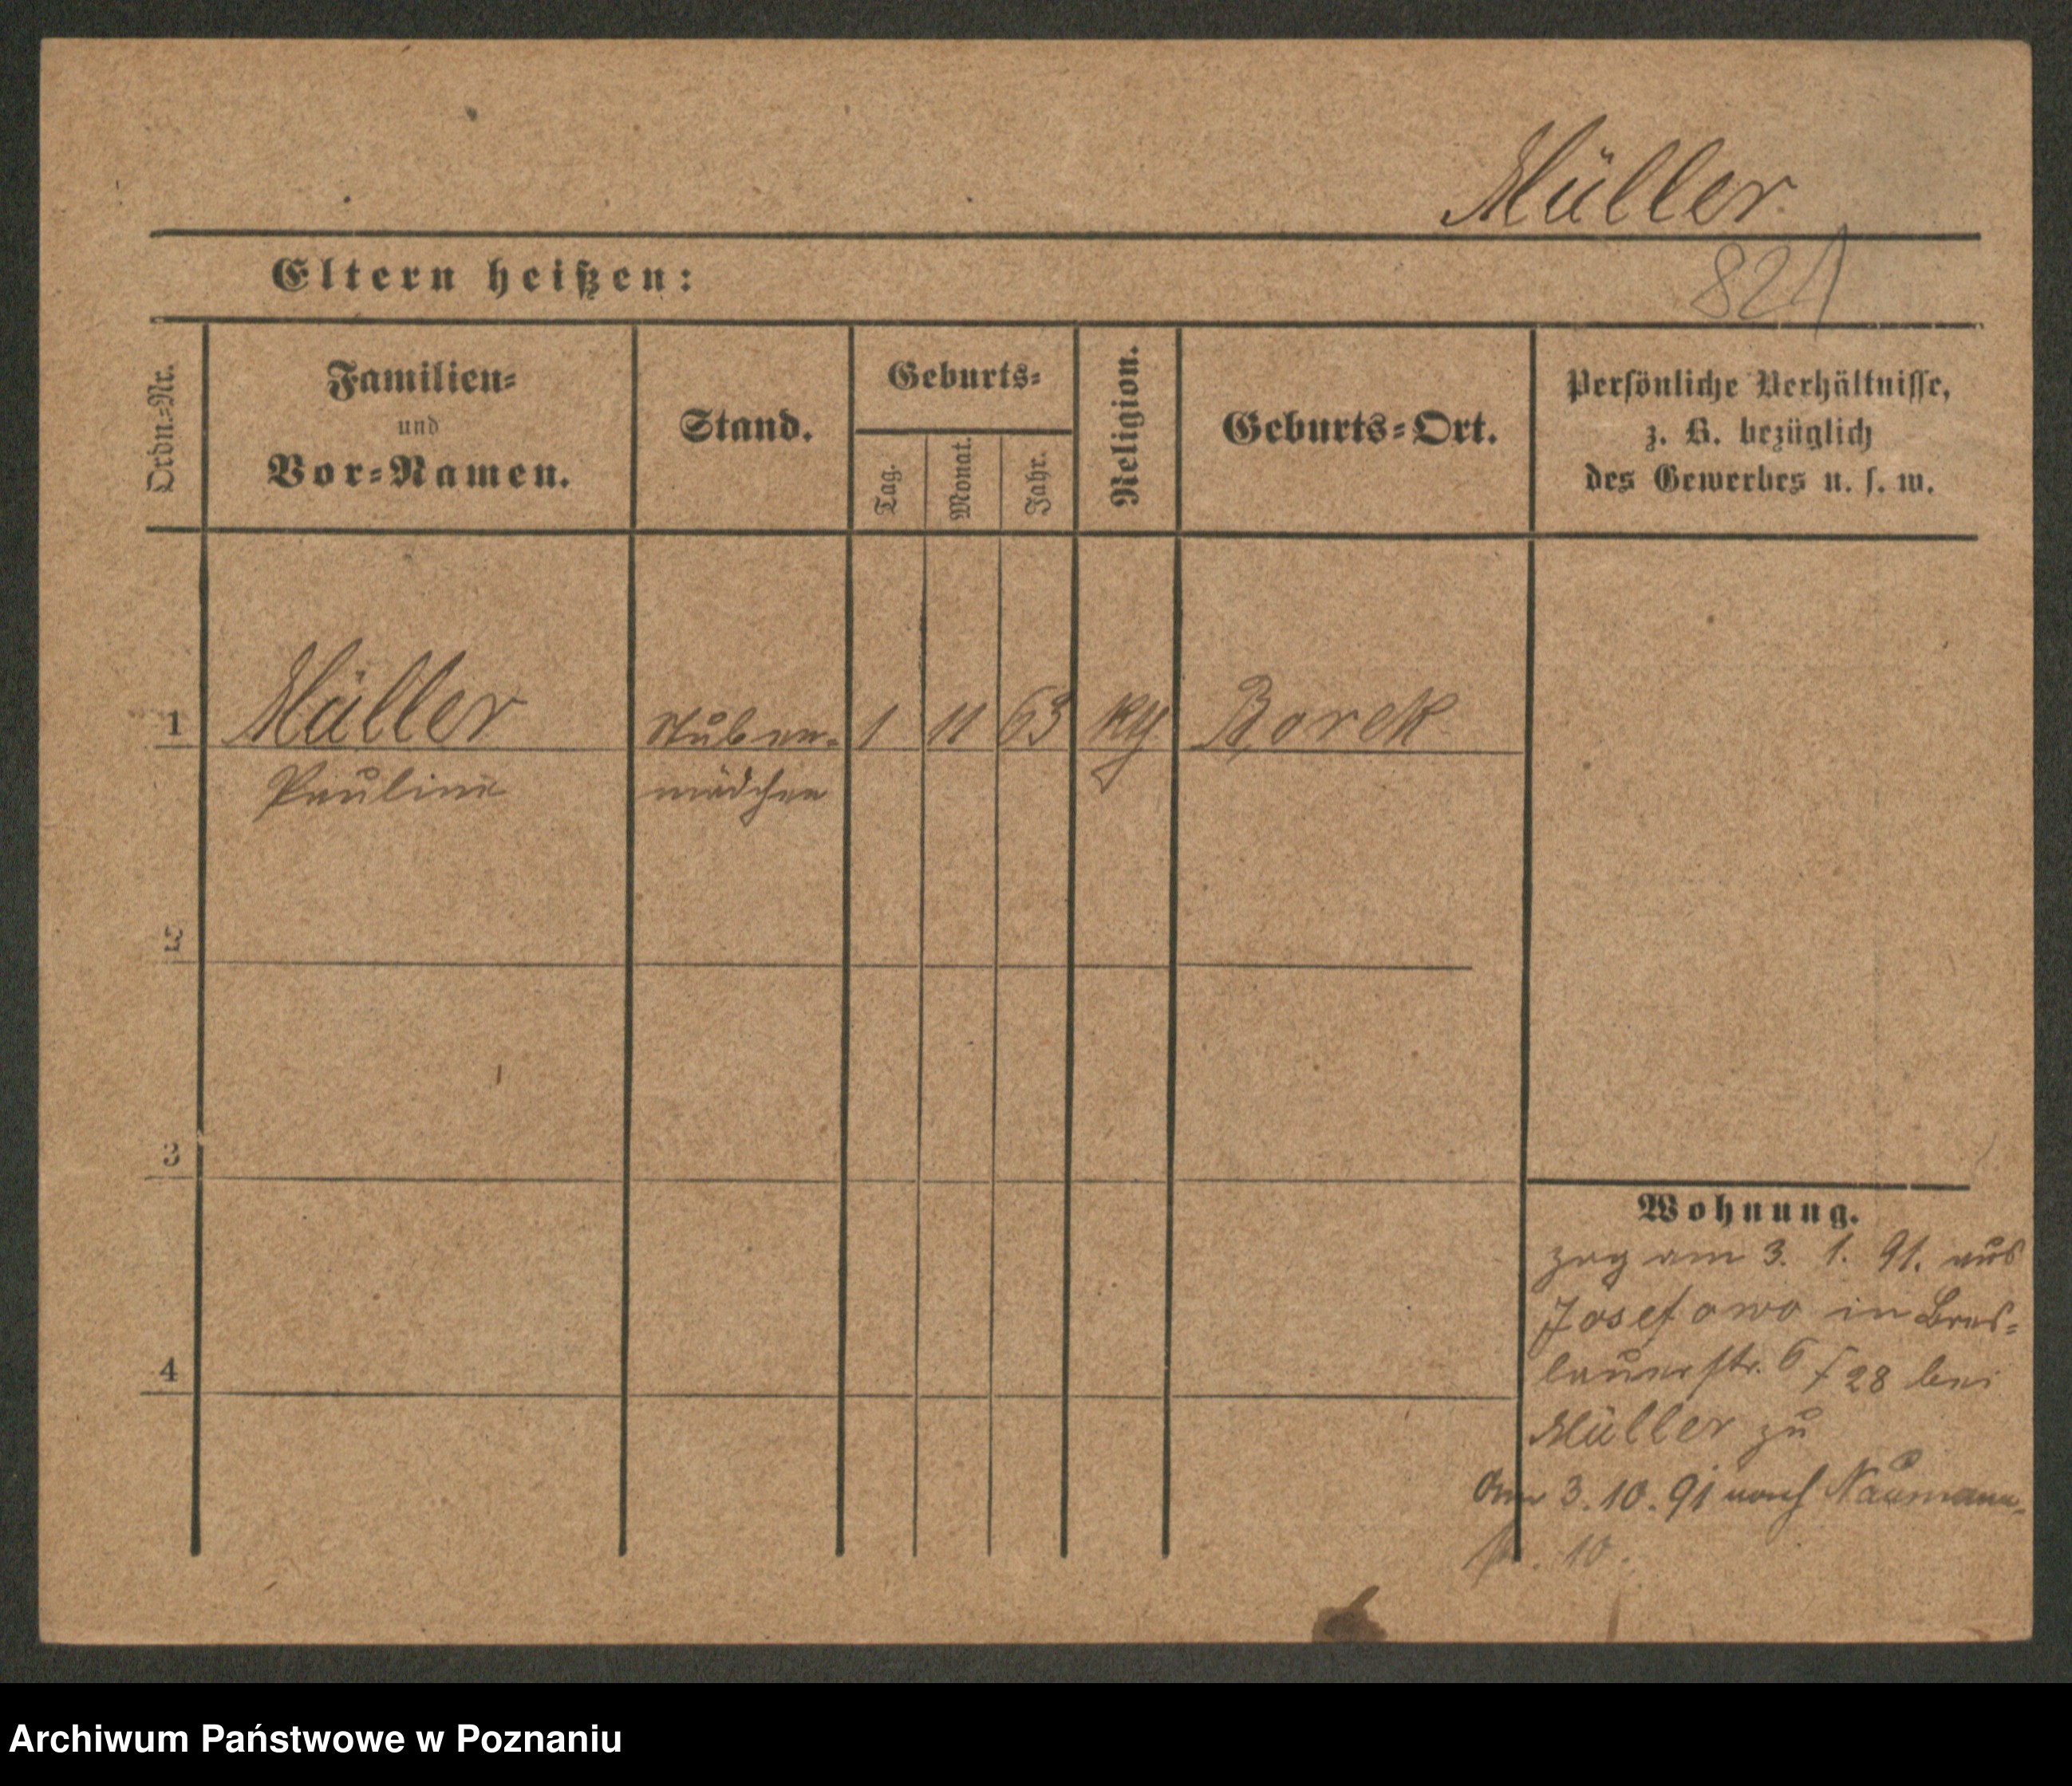 Müller
821
Eltern heißen:
Ordn.-Nr.
Familien-
und
Vor-Namen.
Stand.
Geburts-
Tag.
Monat.
Jahr.
Religion.
Geburts-Ort.
Persönliche Verhältnisse,
z. B. bezüglich
des Gewerbes u. s. w.
1 Müller Stuben- 1 11 63 Borek
Pauline mädchen
2
3
4
Wohnung.
zog am 3. 1. 91. aus
Josefowo in Bres-
lauerstr. 6 / 28 bei
Müller zu
Am 3.10.91 nach Naumann-
str. 10.
Archiwum Państwowe w Poznaniu